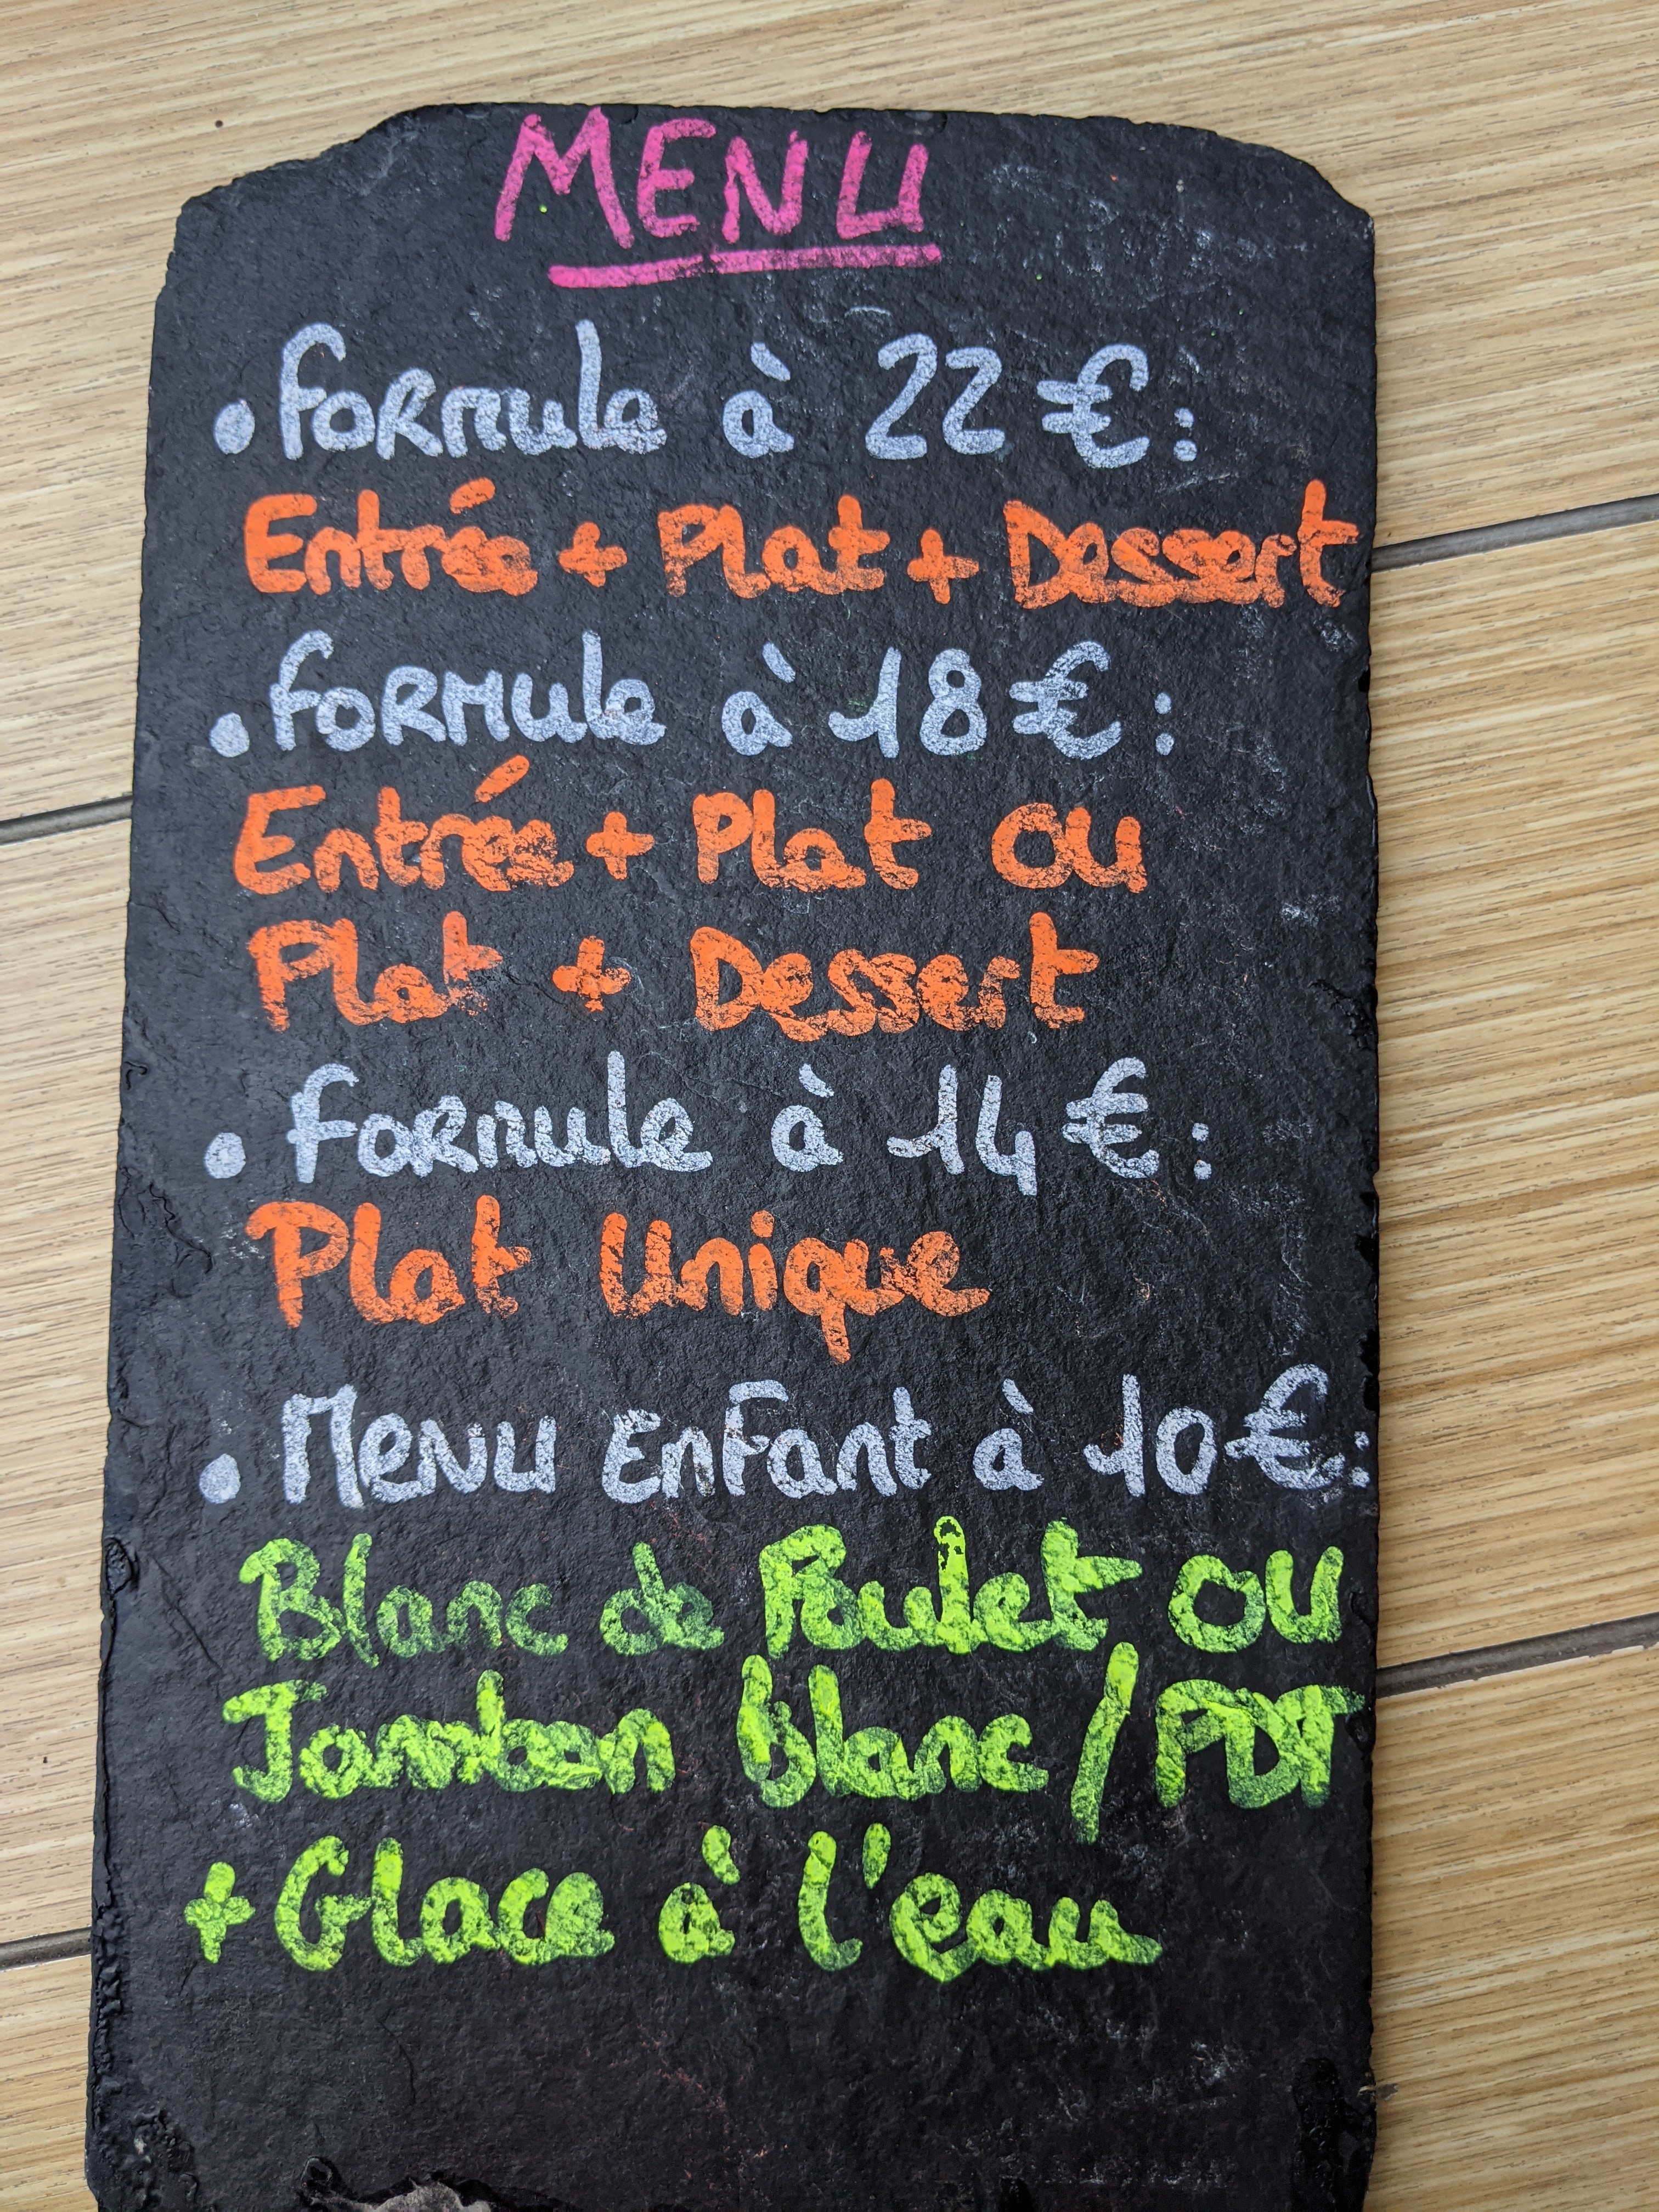 MENU
• FORMULE à 22 € :
Entrée + Plat + Dessert
• FORMULE à 18 € :
Entrée + Plat OU
Plat + Dessert
• FORMULE à 14 € :
Plat Unique
• MENU EnFant à 10 € :
Blanc de Poulet OU
Jambon blanc / PDT
+ Glace à l'eau